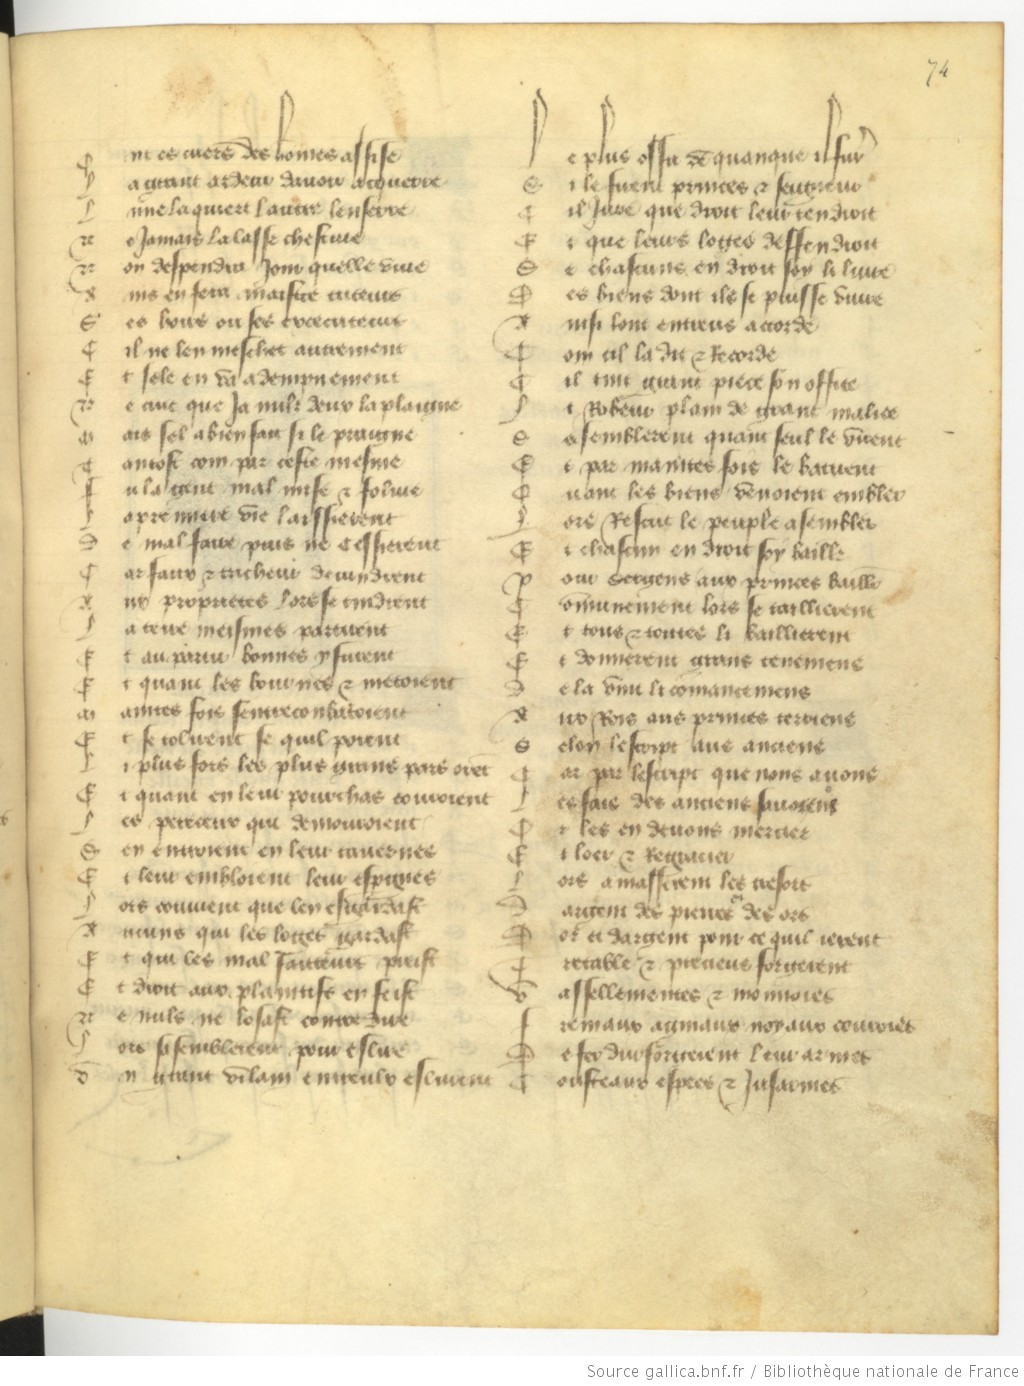 74
E m es cuers des homes assise
P a grant ardeur davoir acquerre
L une laquiert lautre lenserre
N e jamais la lasse chestive
N on despendra jour quelle vive
A ins en fera maistre tuteurs
S es hoirs ou ses executeurs
C il ne len meschet autrement
E t sele en va a dempnement
N e cuit que ja nulz deux la plaigne
M ais sel a bien fait si le praigne
T antost com par ceste mesme
F u la gent mal mise et folive
L a premiere vie laissierent
D e mal faire puis ne cessierent
C ar faux et tricheur devindrent
A ux proprietes lors se tindrent
L a terre meismes partirent
E t au partir bonnes y furent
E t quant les bournes et metoient
M aintes fois sentrecombatoient
E t se tolurent ce quil porent
L i plus fors les plus grans pars orent
E t quant en leur pourchas couroient
L es perceux qui demouroient
S en entroient en leur cavernes
E t leur embloient leur espignes
L ors couvient que len esgardast
A ucuns qui les loges gardast
E t qui les mal faicteurs preist
E t droit aux plaintifs en feist
N e nuls ne losast contredire
L ors sasemblerent pour eslire
U n grant vilain entreulx eslurent
L e plus ossu de quanque il furent
S i le firent princes et seigneur
C il jure que droit leur tendroit
E t que leurs loges deffendroit
S e chascuns en droit soy li livre
D es biens dont il se puisse vivre
A insi lont entreus accorde
C om cil la dit et recorde
C il tint grant piece son office
L i robeur plain de grant malice
S asemblerent quant seul le virent
E t par maintes fois le batirent
Q uant les biens venoient embler
L ors restut le peuple asembler
E t chascun en droit soy baille
P our sergens aux princes baille
C omunement lors se taillierent
E t tous et toutes li baillierent
E t donnerent grans tenemens
D e la vint li comancemens
A ux rois aus princes terriens
S elon lescript aus anciens
C ar par lescript que nous avons
L es fais des anciens savons
S i les en devons mercier
E t loer et regracier
L ors amasserent les tresors
D argent des pierres des ors
D or et dargent pour ce quil ierent
T retable et precieus forgierent
V assellementes et monnoies
F remaux agniaux noyaux couroies
D e fer dur forgierent leur armes
C ousteaux espees et jusarmes
Source gallica.bnf.fr / Bibliothèque nationale de France